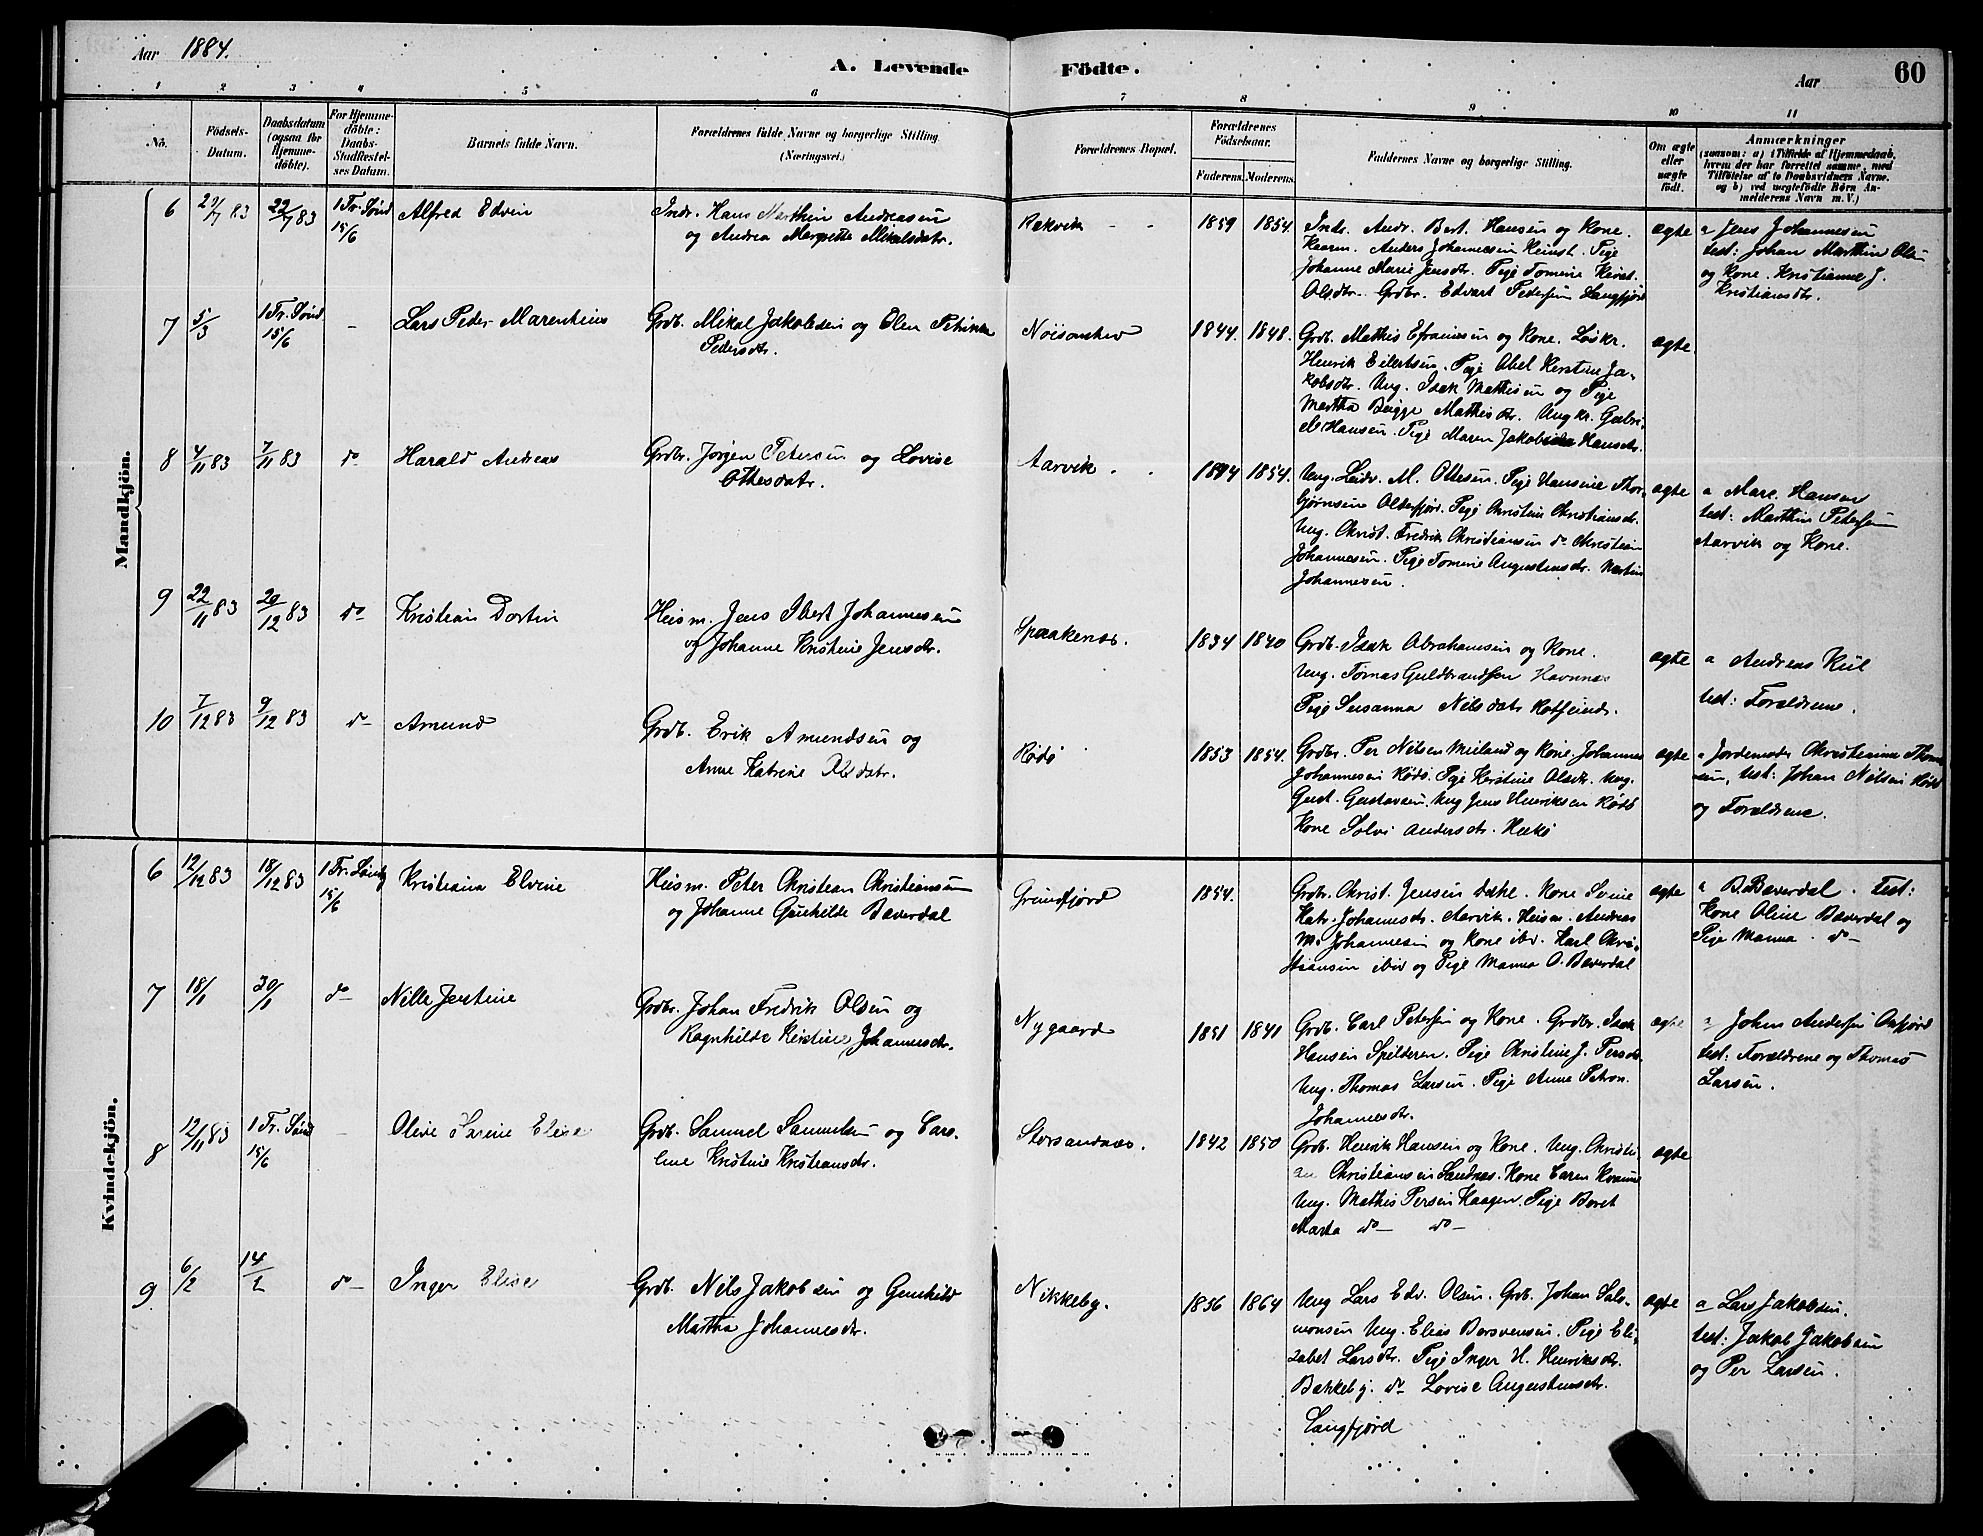 Aar 1884.
A. Levende Födte.
Aar 60
1 2 3 4 5 6 7 8 9 10 11
No.
Födsels-Datum.
Daabsdatum (ogsaa for Hjemmedöbte).
For Hjemmedöbte: Daabs-Stadfæstelses Datum.
Barnets fulde Navn.
Forældrenes fulde Navne og borgerlige Stilling. (Næringsvei.)
Forældrenes Bopæl.
Forældrenes Födselsaar.
Faderens. Moderens.
Faddernes Navne og borgerlige Stilling.
Om ægte eller uægte födt.
Anmærkninger
(saasom: a) i Tilfælde af Hjemmedaab, hvem der har forrettet samme, med Tilföielse af to Daabsvidners Navne. og b) ved uægtefödte Börn Anmelderens Navn m. V.)
Mandkjön.
6 20/7 83 22/7 83 1 Tr. Sønd 15/6 Alfred Edvin
Indr. Hans Marthin Andreasen
og Andrea Margrethe Mikalsdatr.
Rakvik - - 1859 1854.
Inds. Andr. Bert. Hansen og Kone.
Kaaren. Anders Johannesen Heinst. Pige
Johanne Marie Jensdtr. Pige Tomine
Olsdtr. Grdbr. Edvart Pedersen Langfjord
ægte
a Jens Johannesen
test: Johan Marthin Olsen
og Kone. Kristianne J.
Kristiansdtr.
7 5/3 1 Tr. Sønd 15/6 - Lars Peder Marenthius
Grdb. Mikal Jakobsen og Olen Petrikke
Pedersdtr.
1844. 1848.
Grdb. Mathis Efraimsen og Kone. Løskr.
Henrik Eilertsen. Pige Abel Kerstine Ja-
kobsdtr. Ung. Isak Mathisen og Pige
Martha Bugge Mathisdtr. Ungkr. Gabri-
el Hansen. Pige Maren Hansdtr.
ægte.
8 4/11 83 7/11 83 do Harald Andreas
Grdbr. Jørgen Petersen og Lovise
Ottesdatr.
Aarvik - - 1854.
Ung. Leidr. M. Ottesen. Pige Hansine Thor-
bjørnsine Olderfjor. Pige Christine Christiansdr.
Ung. Christ. Fredrik Christiansen do Christian
Johannesen. Pige Tomine Augustinsdr. Martin
Johannesen.
ægte
a Marc. Hansen
test: Marthin Petersen
Aarvik og Kone.
9 22/11 83 29/12 83 do Kristian Dortin
Heism. Jens Ibert Johannesen
og Johanne Kristine Jensdr.
Spaakenæs. 1834 1840
Grdb. Isak Abrahamsen og Kone.
Ung. Tomas Guldbrandsen Havnnæs
Pige Susanna Nilsdatr
ægte
a Andreas Kiil
test: Forældrene.
10 7/12 83 9/12 83 do Amund
Grdb. Erik Amundsen og
Anne Katrine Olsdatr.
Rödö 1853 1854.
Grdbr. Per Nilsen Meiland og Kone. Johannes
Johannesen Rödö. Pige Kerstine Olsdr. Ung.
Gust. Gustavsen. Ung Jens Henriksen Rödö
Kone Solvi Andersdtr.
ægte
a Jordemodr Christianna Thom-
sen, test: Johan Nilsen Rödö
og Forældrene.
Kvindekjön.
6 12/12 83 18/12 83 1 Tr. Sønd 15/6 Kristiana Elvine
Heism. Peter Christian Christiansen
og Johanne Gunhilde Bæverdal
Grundfjord 1854.
Grdbr. Christ. Jensen Kone
Katr. Johannesdr. Aarvik. Heism. Andreas
M. Johannesen og Kone ibd. Karl Chri-
stiansen ibid og Pige Manna O. Bæverdal
ægte
a B. Bæverdal. test:
Kone Oline Bæverdal og
Pige Manna. do
7 18/1 30/1 do Nille Jentine
Grdbr. Johan Fredrik Olsen og
Ragnhilde Kristine Johannesdr.
Nygaard 1841
Grdb. Carl Petersen og Kone. Grdbr. Isak
Hansen Spilderen. Pige Christine J. Persdr.
Ung. Thomas Larsen. Pige Anne Petron.
Johannesdr.
ægte
a Johan Andersen
test: Forældrene og Thomas
Larsen.
8 12/11 83 1 Tr. Sønd 15/6 - Oline Elise
Grdb. Samuel Samuelsen og Caro-
line Kristine Kristiansdr.
Storsandnæs. 1842 1850
Grdb. Henrik Hansen og Kone. Ung. Christi-
an Christiansen Sandnæs. Kone Caren
Ung. Mathis Persen Kaagen. Pige Beret
Marta do do
ægte
9 6/2 14/2 do Inger Elise
Grdb. Nils Jakobsen og Gunhild
Martha Johannesdr.
Nikkeby. 1856 1864
Ung Lars Edv. Olsen. Grdb. Johan Salo-
monsen Ung. Elias Borsvensen. Pige Eli-
zabet Larsdr. Pige Inger H. Henriksdr.
Bakkeby. do Lovise Augustinsdr.
Langfjord
ægte
a Lars Jakobsen.
test: Jakob Jakobsen
og Per Larsen.